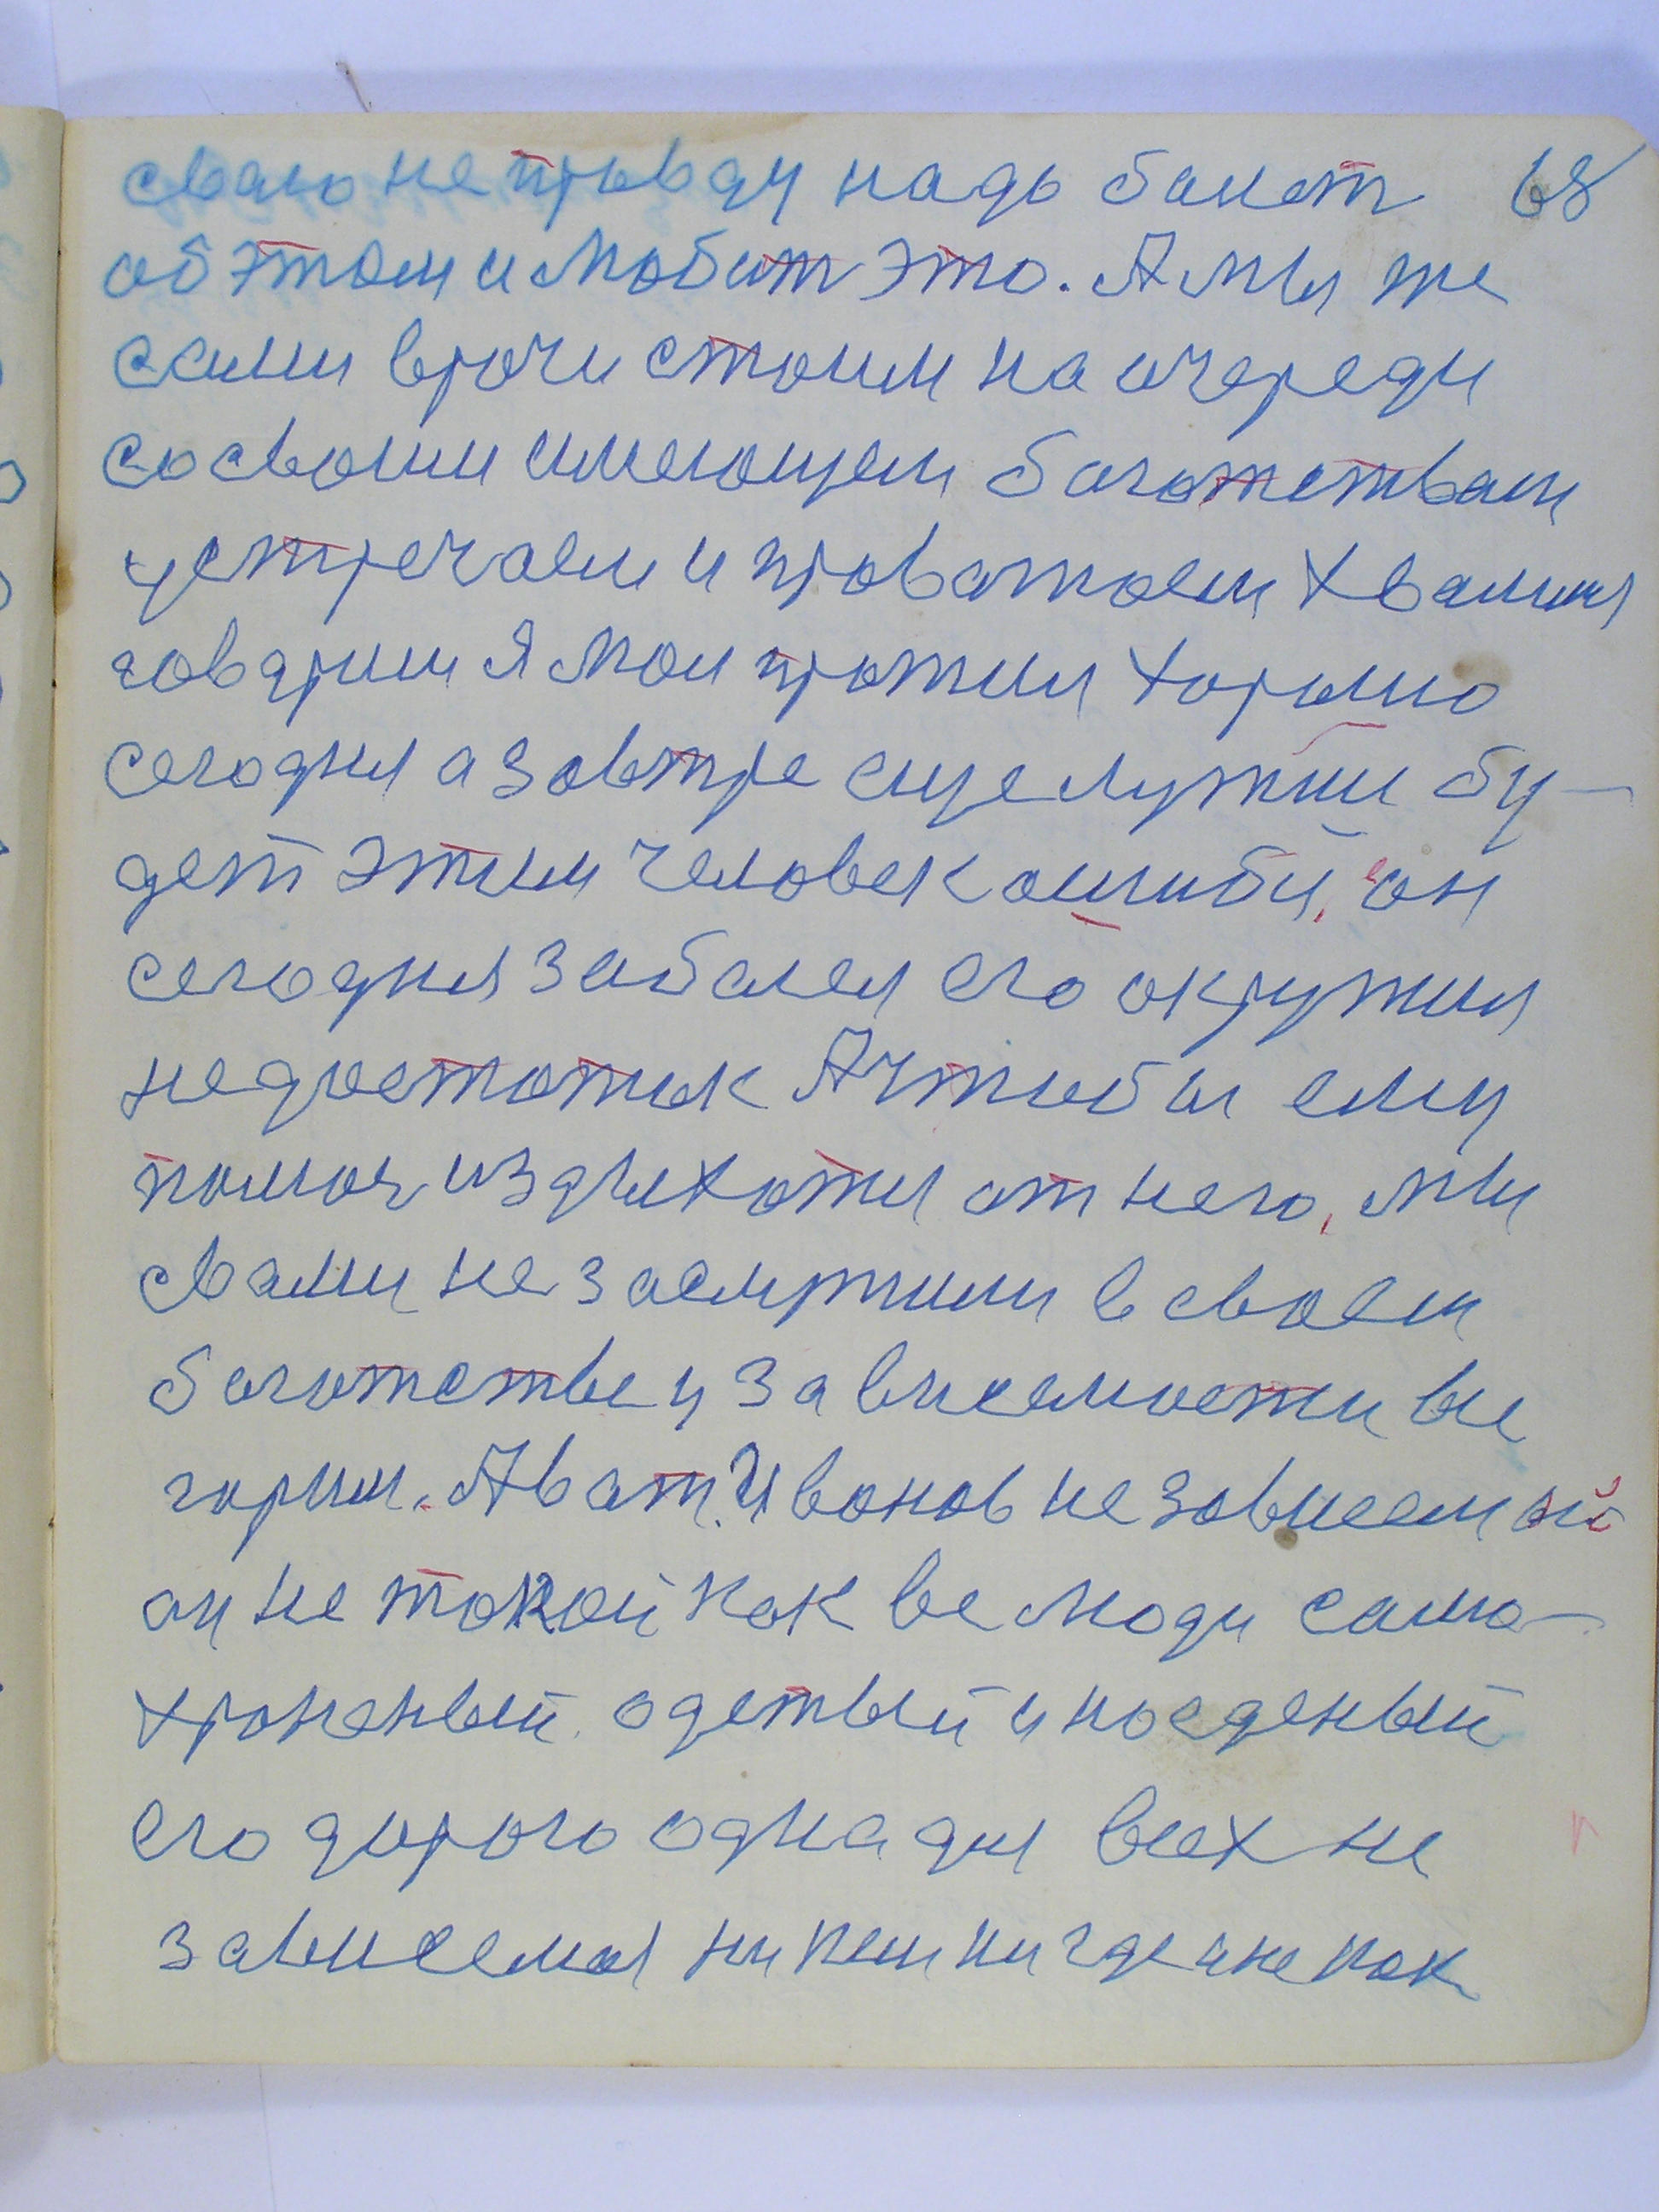 сваю не правду надь болет 68
об этом и любит это. А мы же
сами врочи стоим на очереди
со своим имеющем богатствам
устречаем и проважаем хвалимя
говарим я мои прожил хорошо
сегодня а завтре еще лужши бу-
дет этим человек ошибся, он
сегодня заболел его окружил
недостоток А чтобы ему
помоч издыхотя от него, мы
свами не заслужили в своем
богатстве и зависемости все
горим. А вот Иванов не зависемый
он не токой как все люди само-
хроненый одетый и наеденый
его дорого одна для всех не
зависемая ни кем ни где и не как